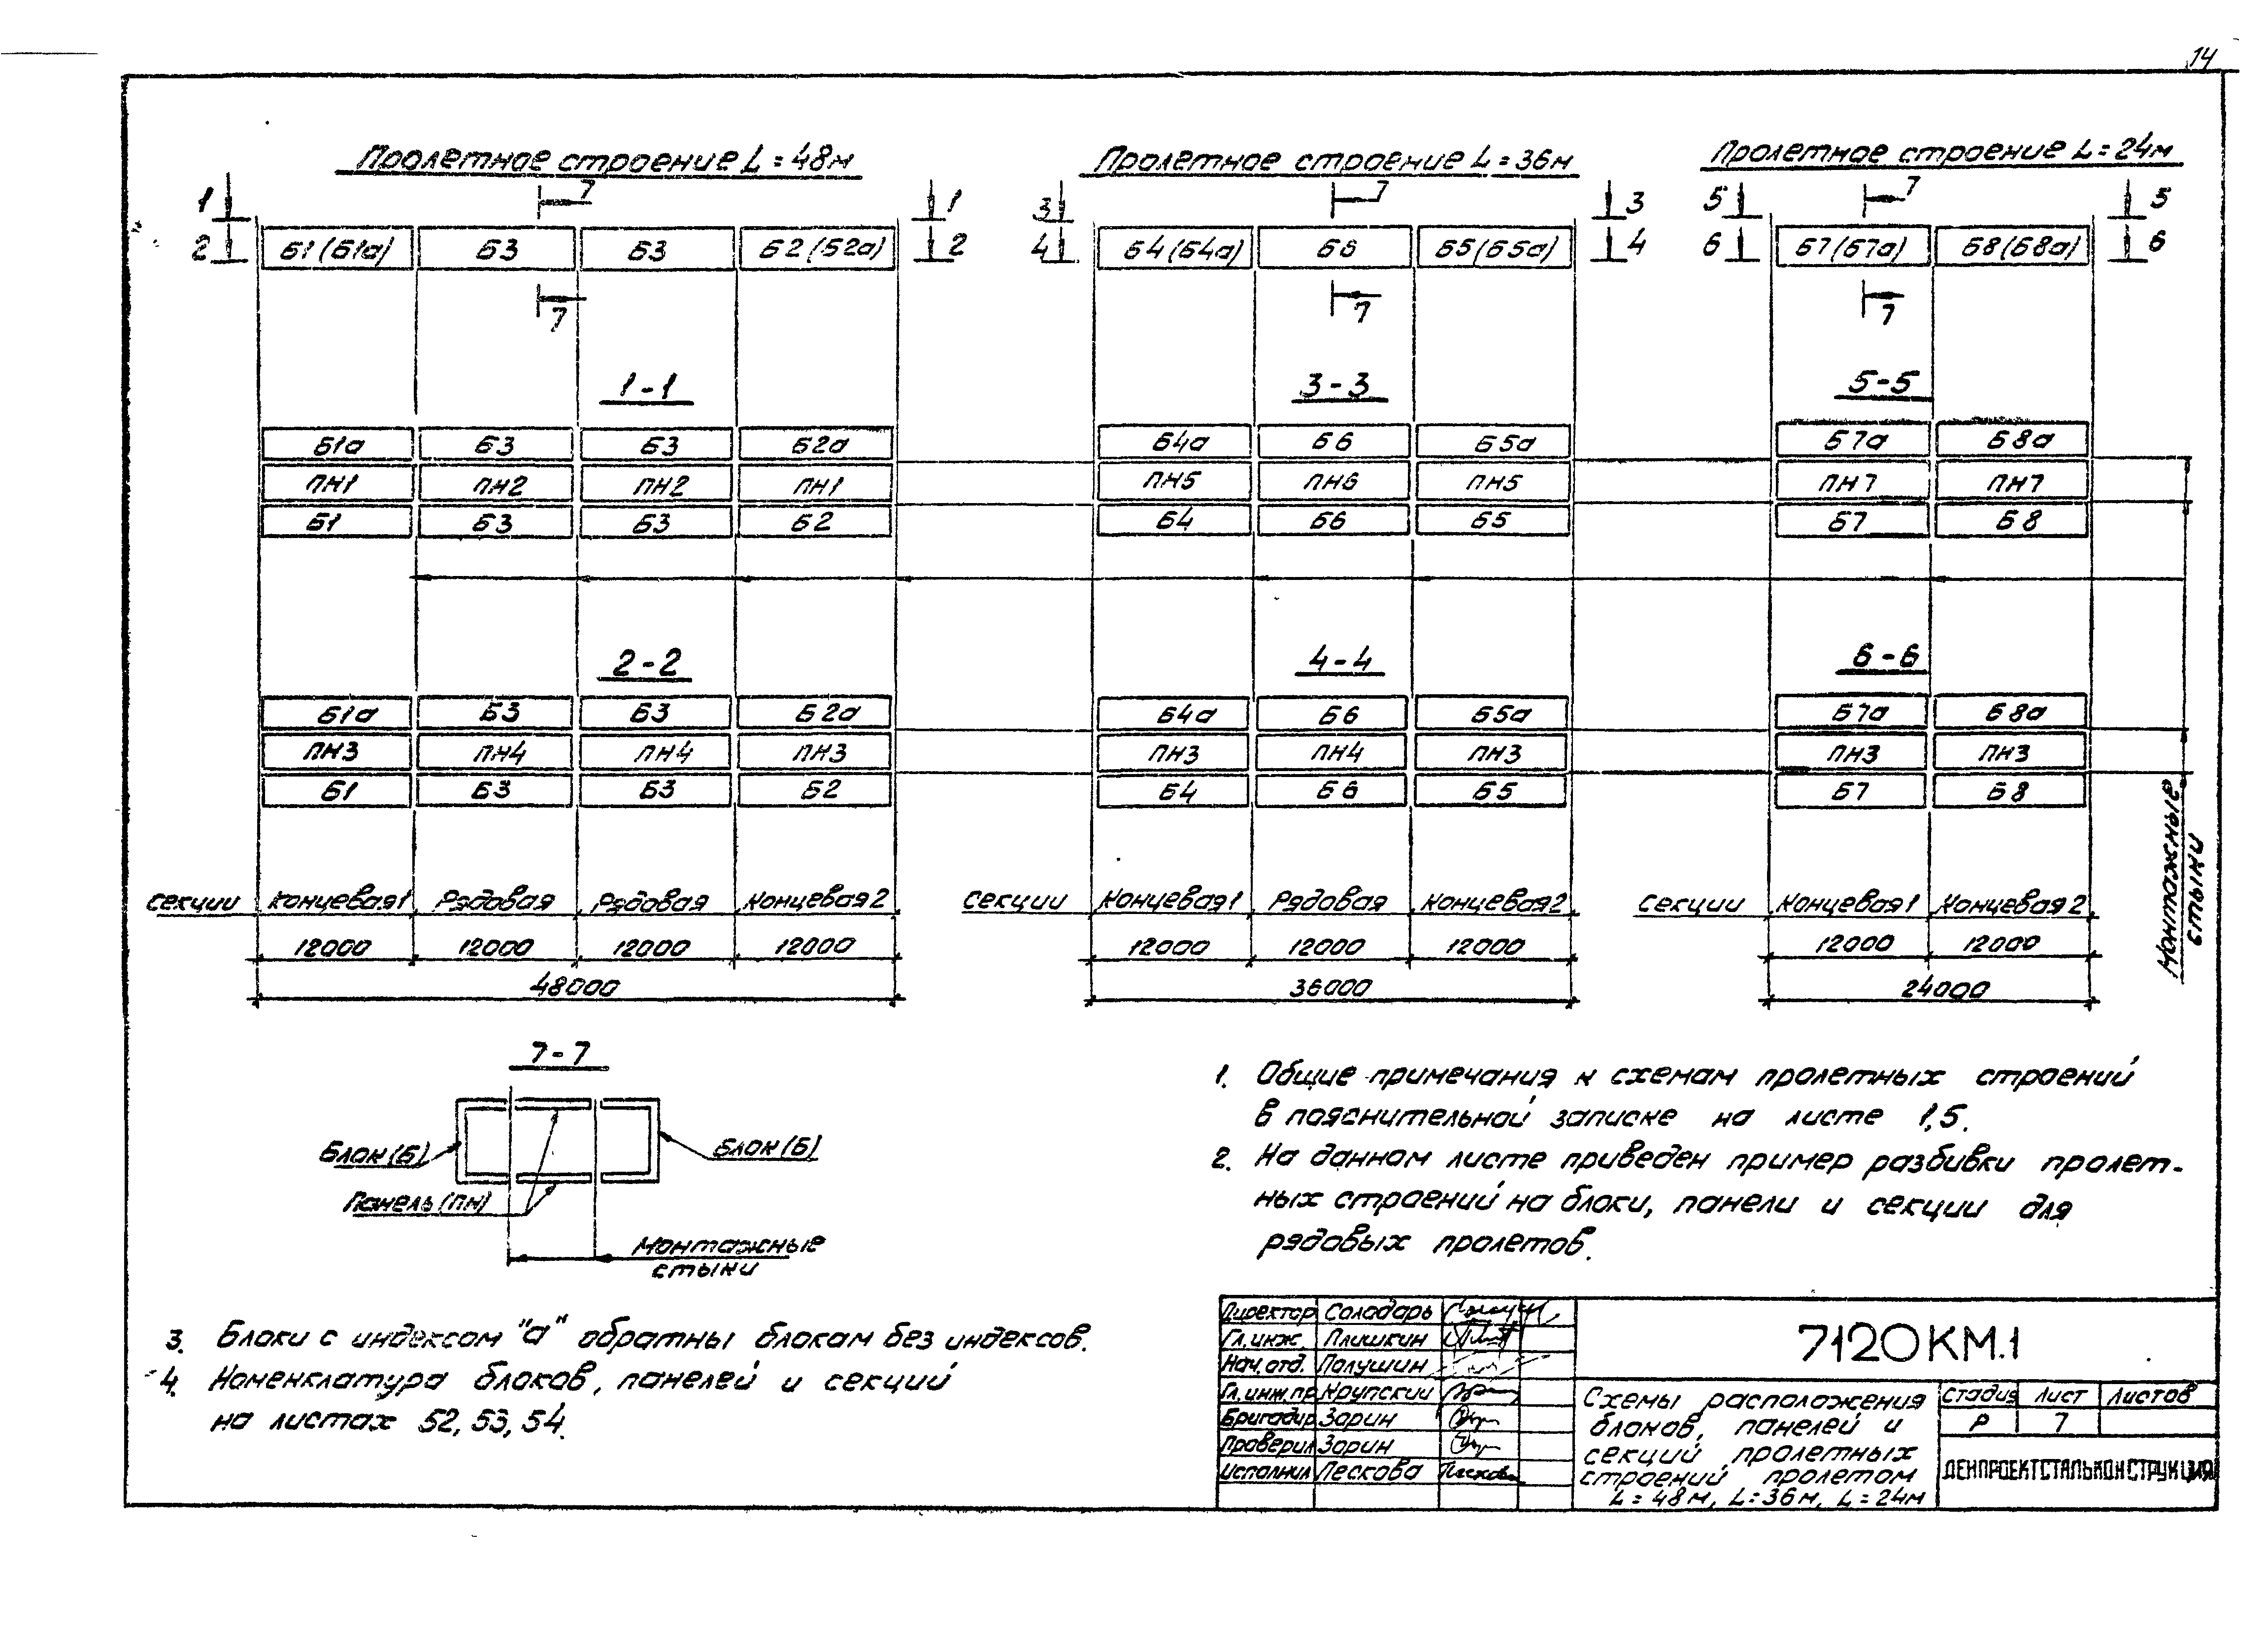 14
Пролетное строение L = 48м
Пролетное строение L = 36м
Пролетное строение L = 24м
1 7 1 3 7 3 5 7 5
2 Б1 (Б1а) Б3 Б3 Б2 (Б2а) 2 4 Б4 (Б4а) Б6 Б5 (Б5а) 4 6 Б7 (Б7а) Б8 (Б8а) 6
7 7 7
1-1 3-3 5-5
Б1а Б3 Б3 Б2а Б4а Б6 Б5а Б7а Б8а
ПН1 ПН2 ПН2 ПН1 ПН5 ПН6 ПН5 ПН7 ПН7
Б1 Б3 Б3 Б2 Б4 Б6 Б5 Б7 Б8
2-2 4-4 6-6
Б1а Б3 Б3 Б2а Б4а Б6 Б5а Б7а Б8а
ПН3 ПН4 ПН4 ПН3 ПН3 ПН4 ПН3 ПН3 ПН3
Б1 Б3 Б3 Б2 Б4 Б6 Б5 Б7 Б8
Монтажные
стыки
секции Концевая 1 Рядовая Рядовая Концевая 2 секции Концевая 1 Рядовая Концевая 2 секции Концевая 1 Концевая 2
12000 12000 12000 12000 12000 12000 12000 12000 12000
48000 36000 24000
7-7
Блок (Б) Блок (Б)
Панель (ПН)
Монтажные
стыки
1. Общие примечания к схемам пролетных строений
в пояснительной записке на листе 1,5.
2. На данном листе приведен пример разбивки пролет-
ных строений на блоки, панели и секции для
рядовых пролетов.
3. Блоки с индексом "а" обратны блокам без индексов.
4. Номенклатура блоков, панелей и секций
на листах 52, 53, 54.
Директор Солодарь
Гл. инж. Плишкин
Нач. отд. Полушин
Гл. инж. пр. Крупский
Бригадир Зорин
Проверил Зорин
Исполнил Пескова Пескова
7120КМ.1
Схемы расположения
блоков, панелей и
секций пролетных
строений пролетом
L = 48 м, L = 36 м, L = 24м
Стадия Лист Листов
Р 7
ЛЕНПРОЕКТСТАЛЬКОНСТРУКЦИЯ